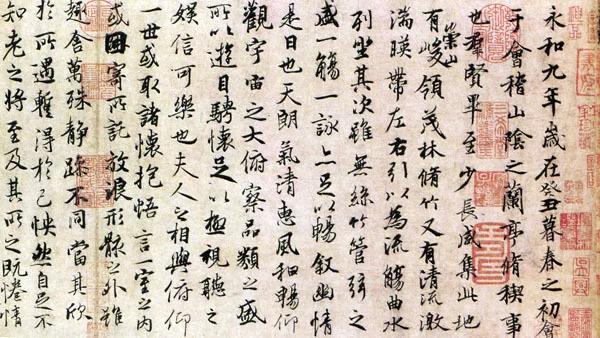 永和九年歲在癸丑暮春之初會
于會稽山陰之蘭亭脩稧事
也羣賢畢至少長咸集此地
有崇山峻領茂林脩竹又有清流激
湍暎帶左右引以為流觴曲水
列坐其次雖無絲竹管弦之
盛一觴一詠亦足以暢叙幽情
是日也天朗氣清惠風和暢仰
觀宇宙之大俯察品類之盛
所以遊目騁懷足以極視聽之
娛信可樂也夫人之相與俯仰
一世或取諸懷抱悟言一室之內
或因寄所託放浪形骸之外雖
趣舍萬殊靜躁不同當其欣
於所遇蹔得於己怏然自足不
知老之將至及其所之既惓情